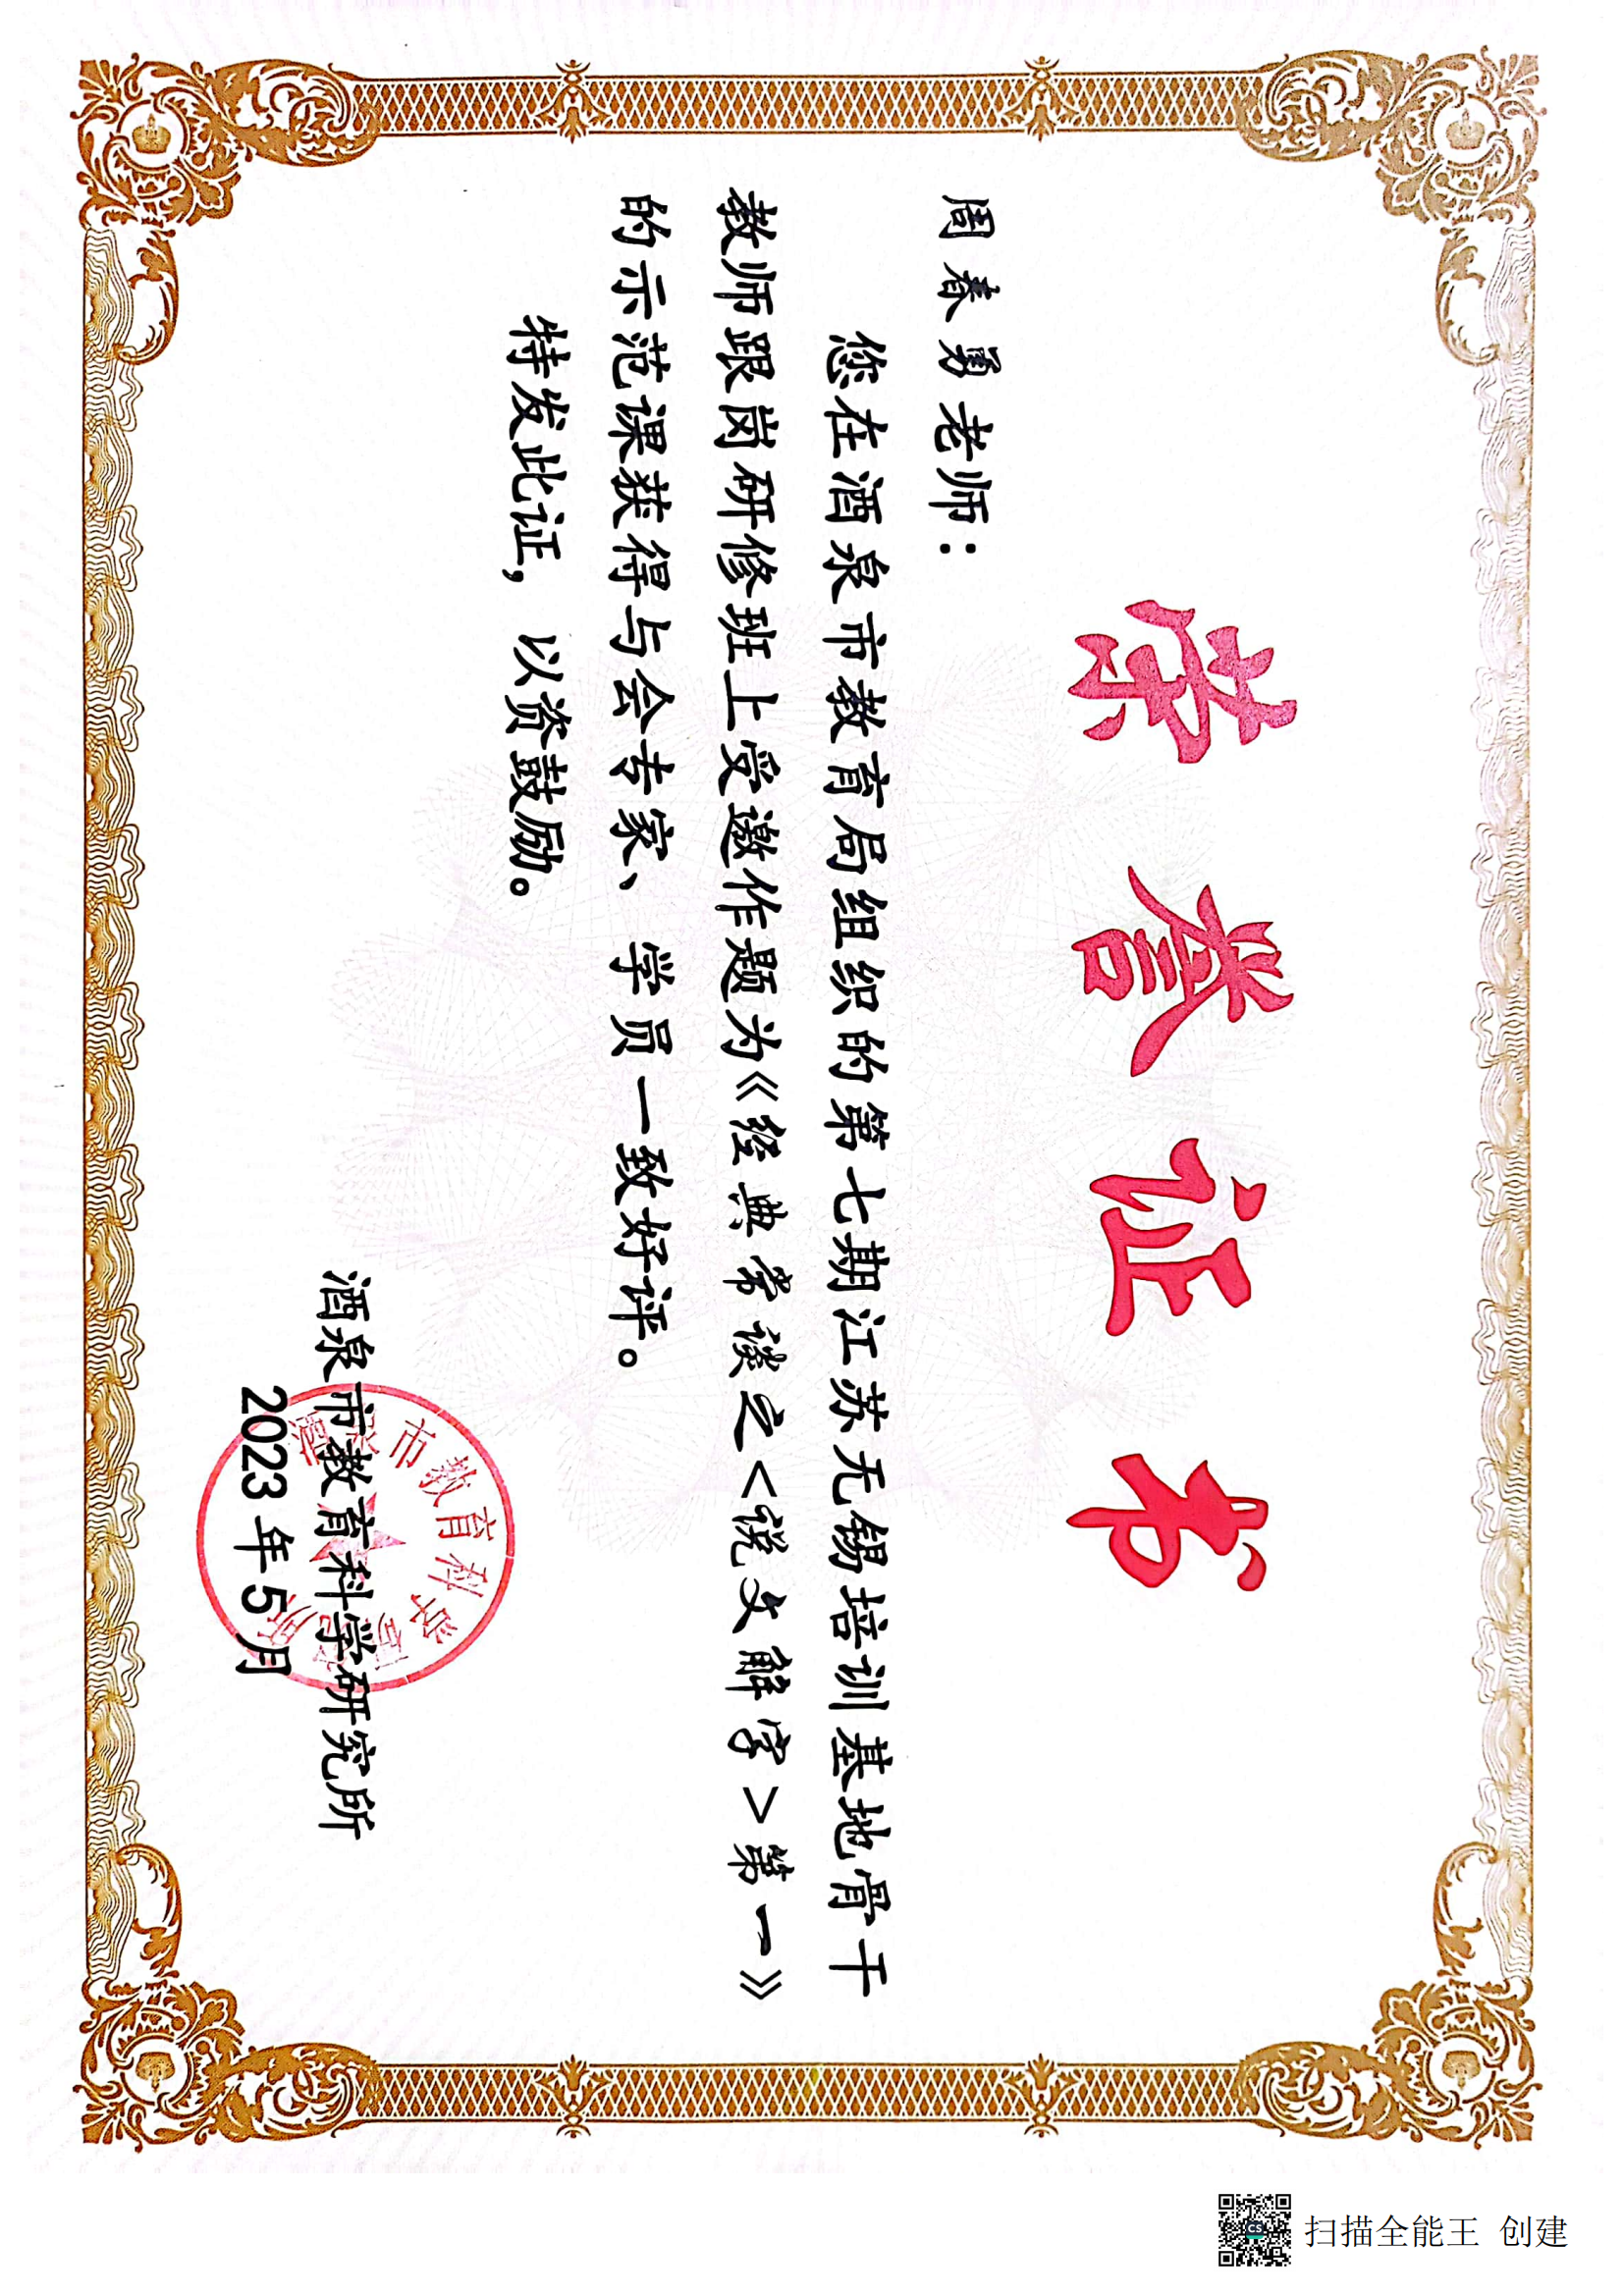 荣誉证书
周春勇老师：
您在酒泉市教育局组织的第七期江苏无锡培训基地骨干
教师跟岗研修班上受邀作题为《经典常谈之<说文解字>第一》
的示范课获得与会专家、学员一致好评。
特发此证，以资鼓励。
酒泉市教育科学研究所
2023年5月
市教育科学
扫描全能王 创建